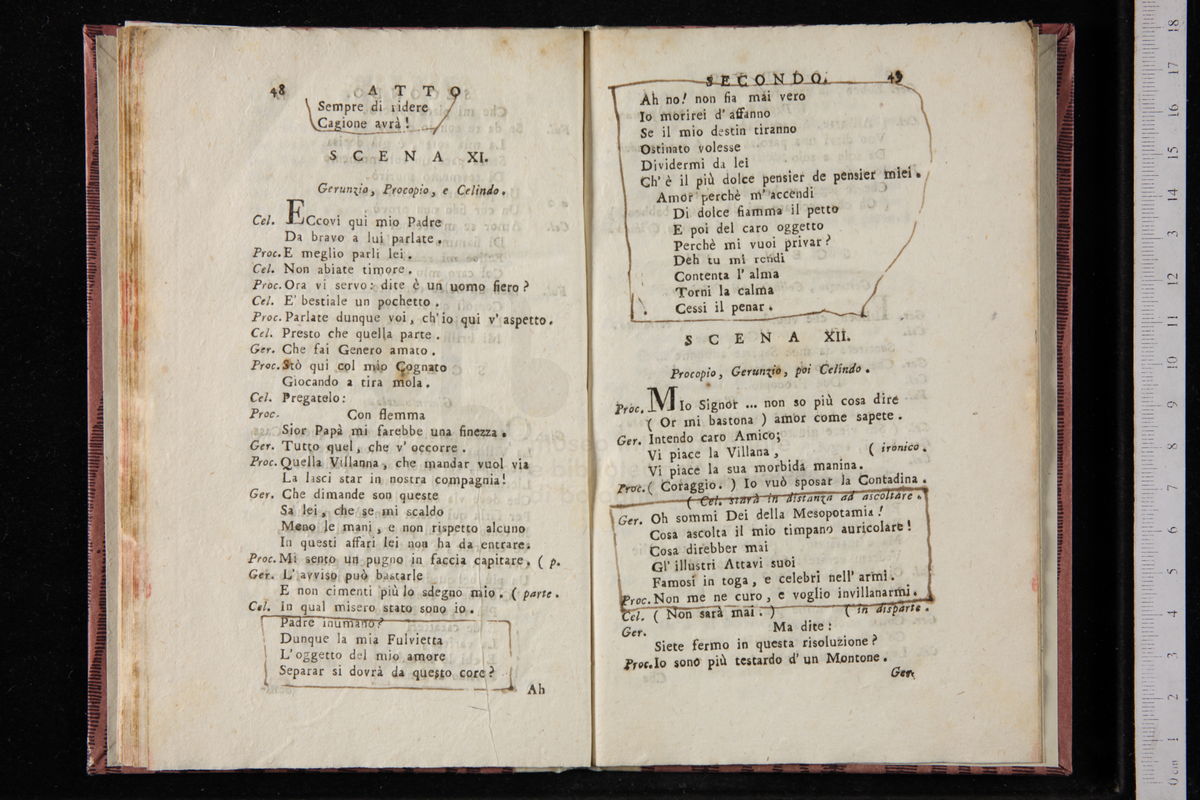 48 ATTO
Sempre di ridere
Cagione avrà!
SCENA XI.
Gerunzio, Procopio, e Celindo.
Cel. ECcovi qui mio Padre
Da bravo a lui parlate.
Proc. E meglio parli lei.
Cel. Non abiate timore.
Proc. Ora vi servo: dite è un uomo fiero?
Cel. E' bestiale un pochetto.
Proc. Parlate dunque voi, ch'io qui v'aspetto.
Cel. Presto che quella parte.
Ger. Che fai Genero amato.
Proc. Stò qui col mio Cognato
Giocando a tira mola.
Cel. Pregatelo:
Proc. Con flemma
Sior Papà mi farebbe una finezza.
Ger. Tutto quel, che v'occorre.
Proc. Quella Villanna, che mandar vuol via
La lasci star in nostra compagnia!
Ger. Che dimande son queste
Sa lei, che se mi scaldo
Meno le mani, e non rispetto alcuno
In questi affari lei non ha da entrare.
Proc. Mi sento un pugno in faccia capitare. ( p.
Ger. L'avviso può bastarle
E non cimenti più lo sdegno mio. ( parte.
Cel. In qual misero stato sono io.
Padre inumano?
Dunque la mia Fulvietta
L'oggetto del mio amore
Separar si dovrà da questo core?
Ah
SECONDO. 49
Ah no! non fia mai vero
Io morirei d'affanno
Se il mio destin tiranno
Ostinato volesse
Dividermi da lei
Ch'è il più dolce pensier de pensier miei.
Amor perchè m'accendi
Di dolce fiamma il petto
E poi del caro oggetto
Perchè mi vuoi privar?
Deh tu mi rendi
Contenta l'alma
Torni la calma
Cessi il penar.
SCENA XII.
Procopio, Gerunzio, poi Celindo.
Proc. MIo Signor ... non so più cosa dire
( Or mi bastona ) amor come sapete.
Ger. Intendo caro Amico;
Vi piace la Villana, ( ironico.
Vi piace la sua morbida manina.
Proc. ( Coraggio. ) Io vuò sposar la Contadina.
( Cel. starà in distanza ad ascoltare.
Ger. Oh sommi Dei della Mesopotamia!
Cosa ascolta il mio timpano auricolare!
Cosa direbber mai
Gl'illustri Attavi suoi
Famosi in toga, e celebri nell'armi.
Proc. Non me ne curo, e voglio invillanarmi.
Cel. ( Non sarà mai. ) ( in disparte.
Ger. Ma dite:
Siete fermo in questa risoluzione?
Proc. Io sono più testardo d'un Montone.
Ger.